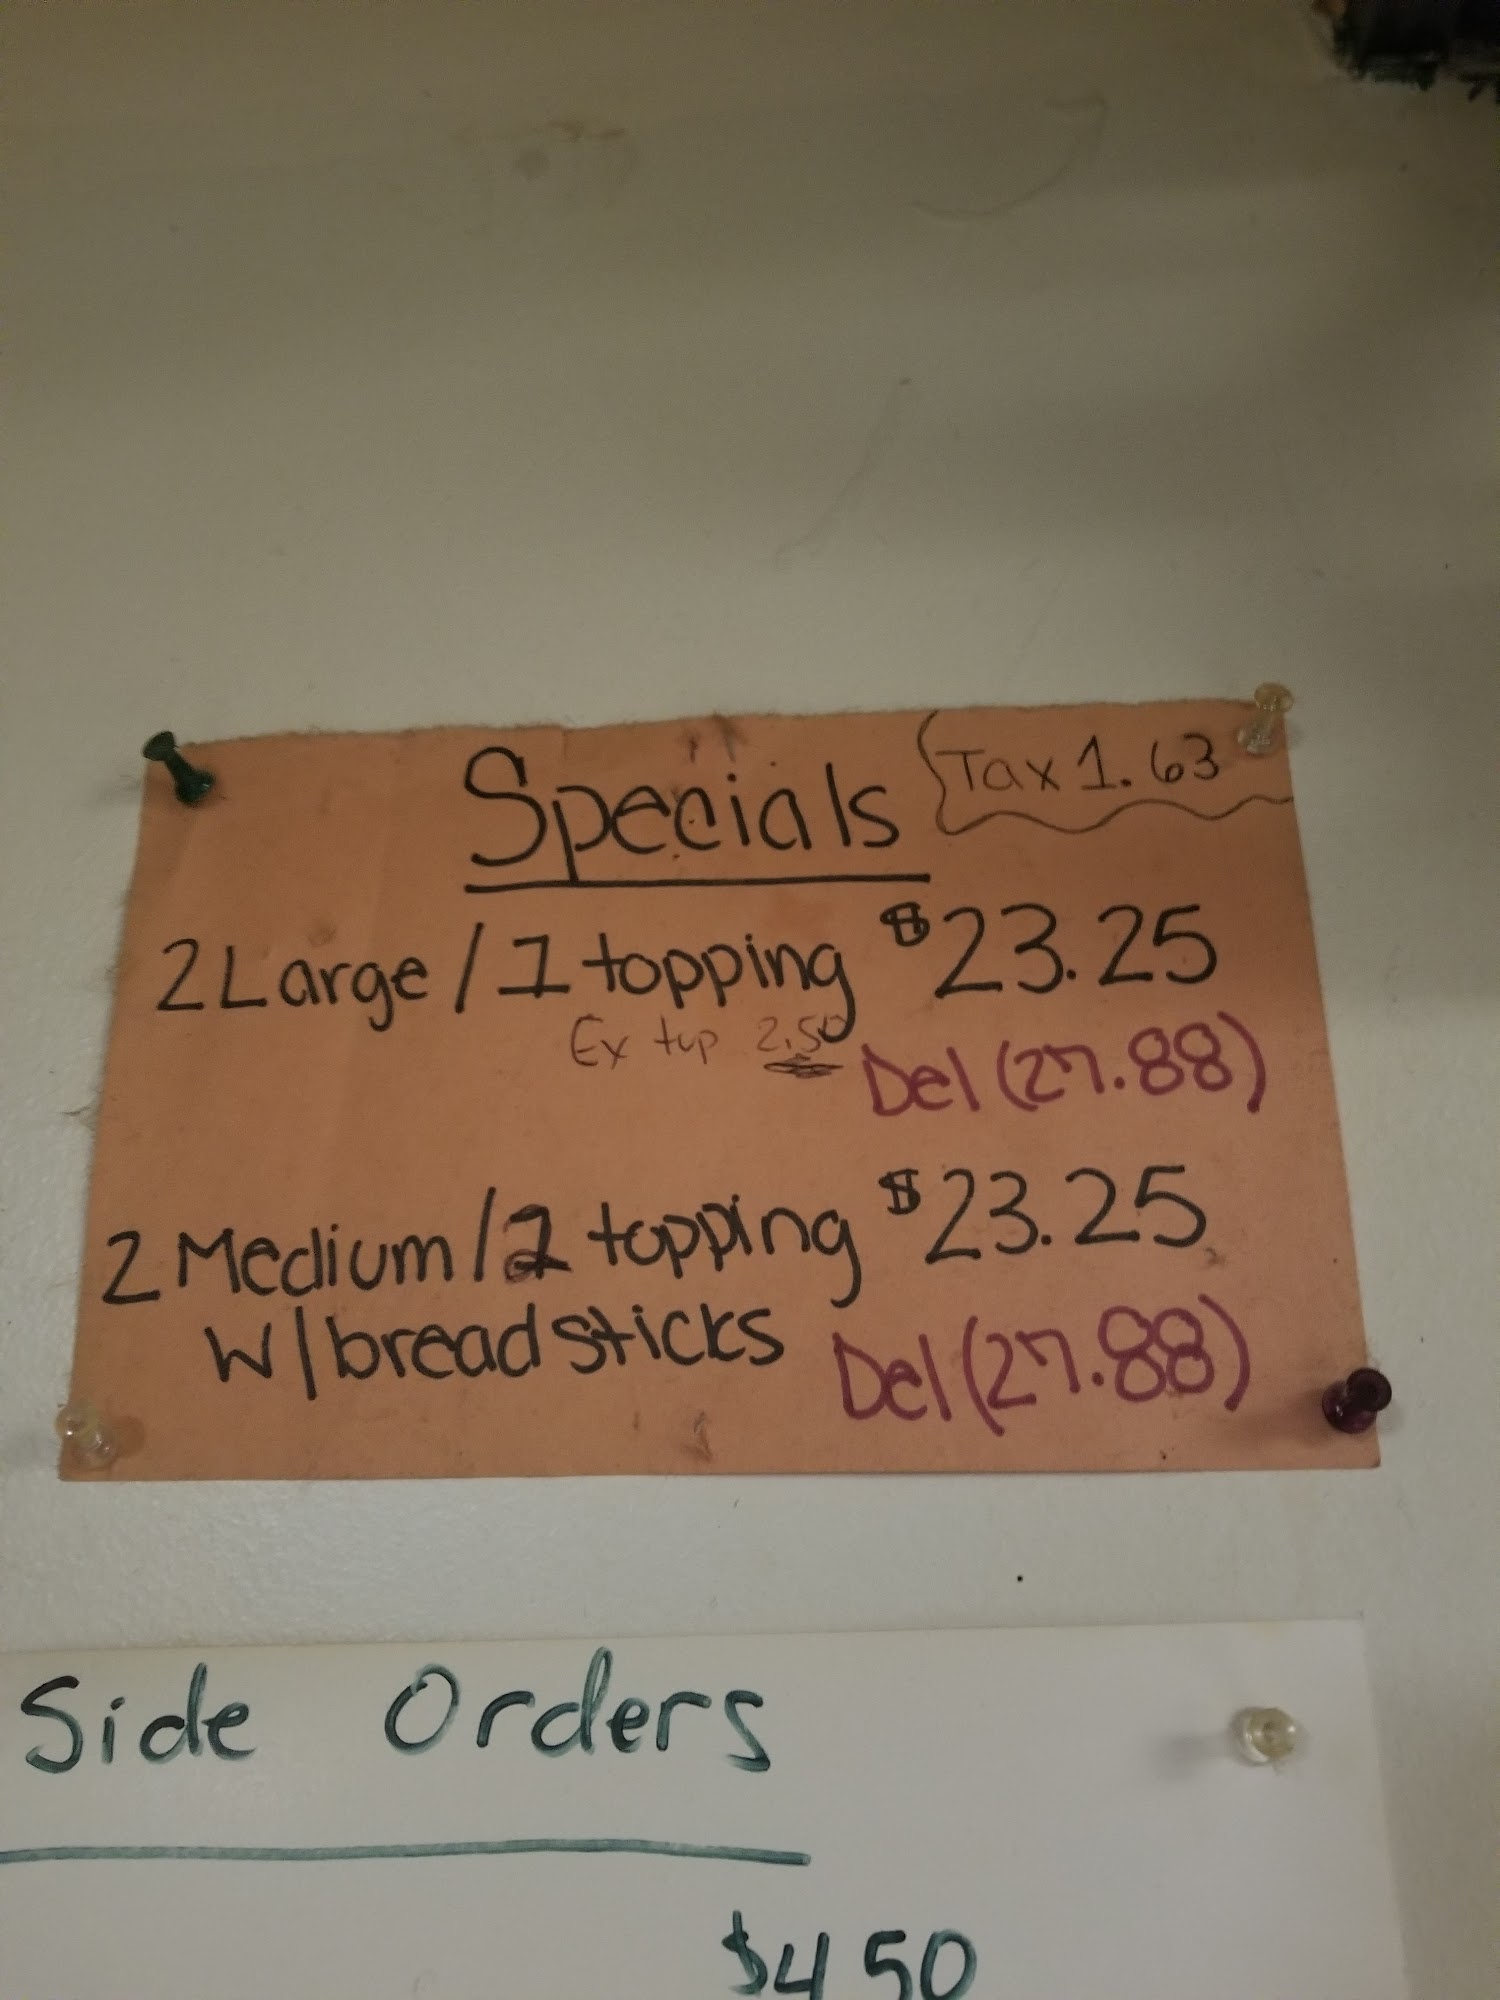 Specials
Tax 1.63
2 Large / 1 topping $23.25
Ex top 2.50
Del (27.88)
2 Medium / 2 topping $23.25
W/ breadsticks
Del (27.88)
Side Orders
$4.50